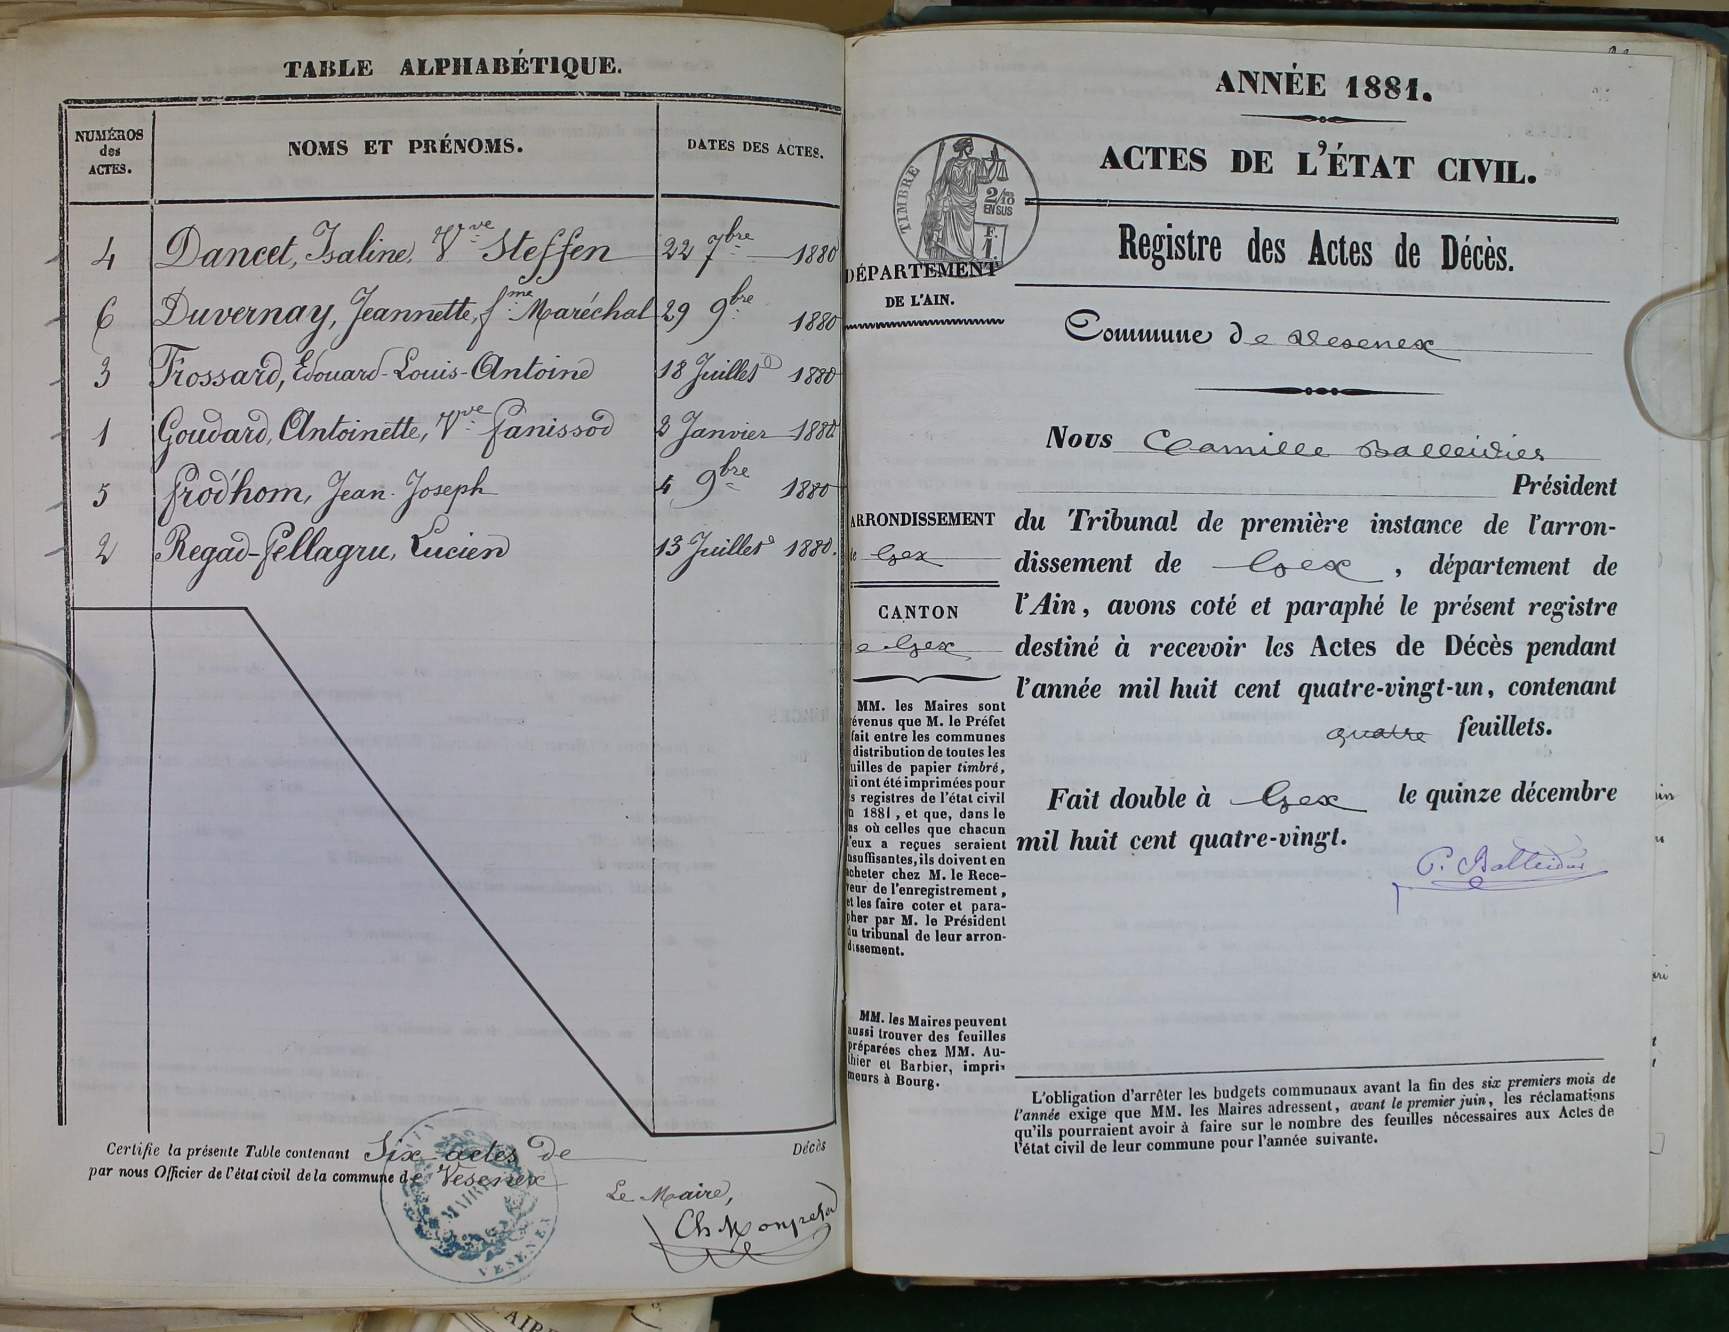 TABLE ALPHABÉTIQUE.
NUMÉROS des ACTES.
NOMS ET PRÉNOMS.
DATES DES ACTES.
4 Dancet, Isaline, Vve Steffen 22 7bre 1880
6 Duvernay, Jeannette, fme Maréchal 29 9bre 1880
3 Frossard, Edouard-Louis-Antoine 18 Juillet 1880
1 Goudard, Antoinette, Vve Panissod 3 Janvier 1880
5 Prod'hom, Jean-Joseph 4 9bre 1880
2 Regad-Pellagru, Lucien 13 Juillet 1880.
Certifie la présente Table contenant Six actes de Décès
par nous Officier de l'état civil de la commune de Vesenex
MAIRIE
VESENEX
Le Maire,
ANNÉE 1881.
ACTES DE L'ÉTAT CIVIL.
TIMBRE
2/10
EN SUS
F.
1.
Registre des Actes de Décès.
DÉPARTEMENT
DE L'AIN.
Commune de Vesenex
Nous Camille Balleidier
Président
ARRONDISSEMENT
de Gex
CANTON
de Gex
du Tribunal de première instance de l'arron-
dissement de Gex, département de
l'Ain, avons coté et paraphé le présent registre
destiné à recevoir les Actes de Décès pendant
l'année mil huit cent quatre-vingt-un, contenant
quatre feuillets.
Fait double à Gex le quinze décembre
mil huit cent quatre-vingt.
C. Balleidier
MM. les Maires sont
évenus que M. le Préfet
fait entre les communes
distribution de toutes les
uilles de papier timbré,
ui ont été imprimées pour
s registres de l'état civil
n 1881, et que, dans le
as où celles que chacun
'eux a reçues seraient
nsuffisantes, ils doivent en
acheter chez M. le Rece-
veur de l'enregistrement,
et les faire coter et para-
pher par M. le Président
du tribunal de leur arron-
dissement.
MM. les Maires peuvent
aussi trouver des feuilles
préparées chez MM. Au-
thier et Barbier, impri-
meurs à Bourg.
L'obligation d'arrêter les budgets communaux avant la fin des six premiers mois de
l'année exige que MM. les Maires adressent, avant le premier juin, les réclamations
qu'ils pourraient avoir à faire sur le nombre des feuilles nécessaires aux Actes de
l'état civil de leur commune pour l'année suivante.